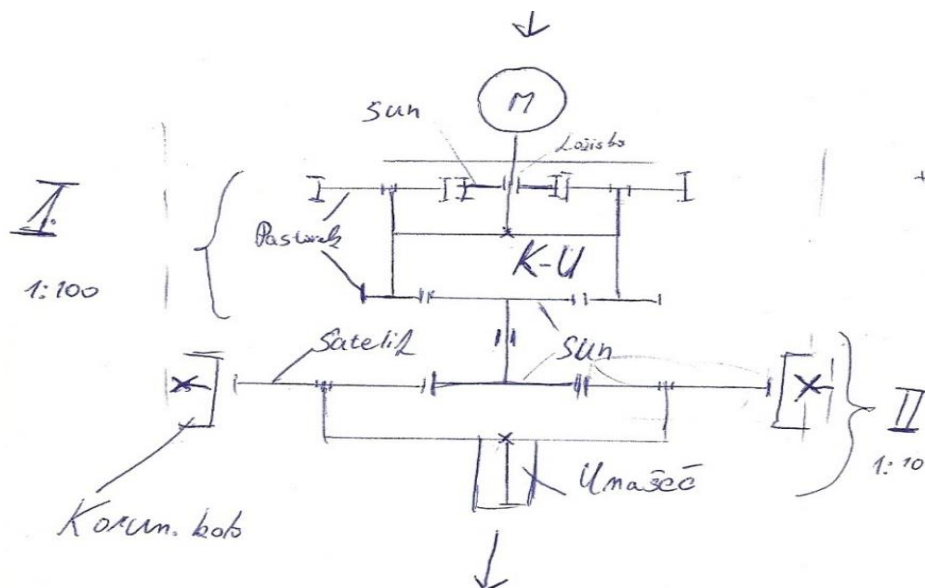 M
Sun
Ložisko
I.
Pastorek
K-U
1:100
Satelit
Sun
II
1:10
Unašeč
Korun. kolo